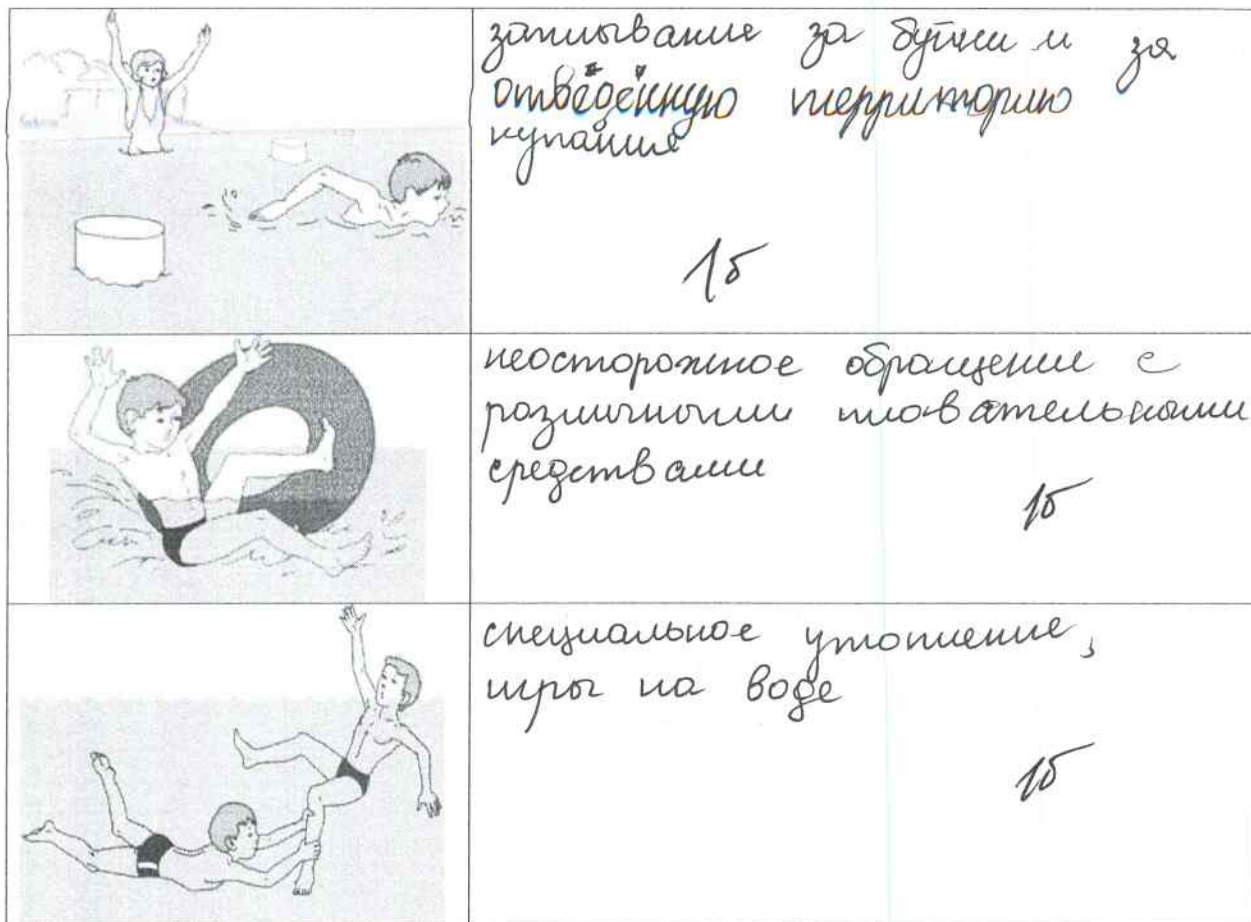 заплывание за буйки и за
отведённую территорию
купания
1б
неосторожное обращение с
различными плавательными
средствами
1б
специальное утопление,
игры на воде
1б